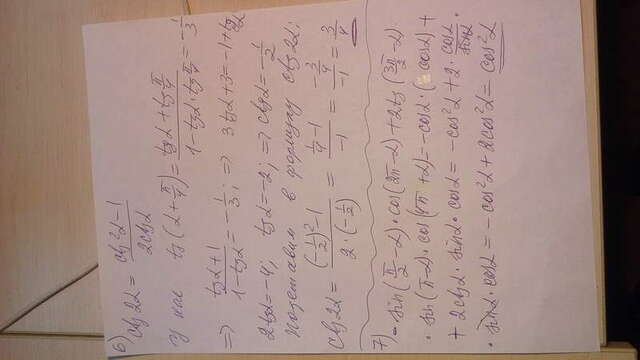 6) ctg 2α = (ctg²α - 1)/(2ctgα)
У нас tg(α + π/4) = (tgα + tg π/4)/(1 - tgα · tg π/4) = -1/3
=> (tgα + 1)/(1 - tgα) = -1/3; => 3tgα + 3 = -1 + tgα
2tgα = -4; tgα = -2; => ctgα = -1/2
Подставим в формулу ctg 2α;
ctg 2α = ((-1/2)² - 1)/(2 · (-1/2)) = (1/4 - 1)/(-1) = (-3/4)/(-1) = 3/4
7) - sin(π/2 - α) · cos(2π - α) + 2tg(3π/2 - α) ·
· sin(π - α) · cos(4π + α) = -cosα · (cosα) +
+ 2ctgα · sinα · cosα = -cos²α + 2 · cosα/sinα ·
· sinα · cosα = -cos²α + 2cos²α = cos²α